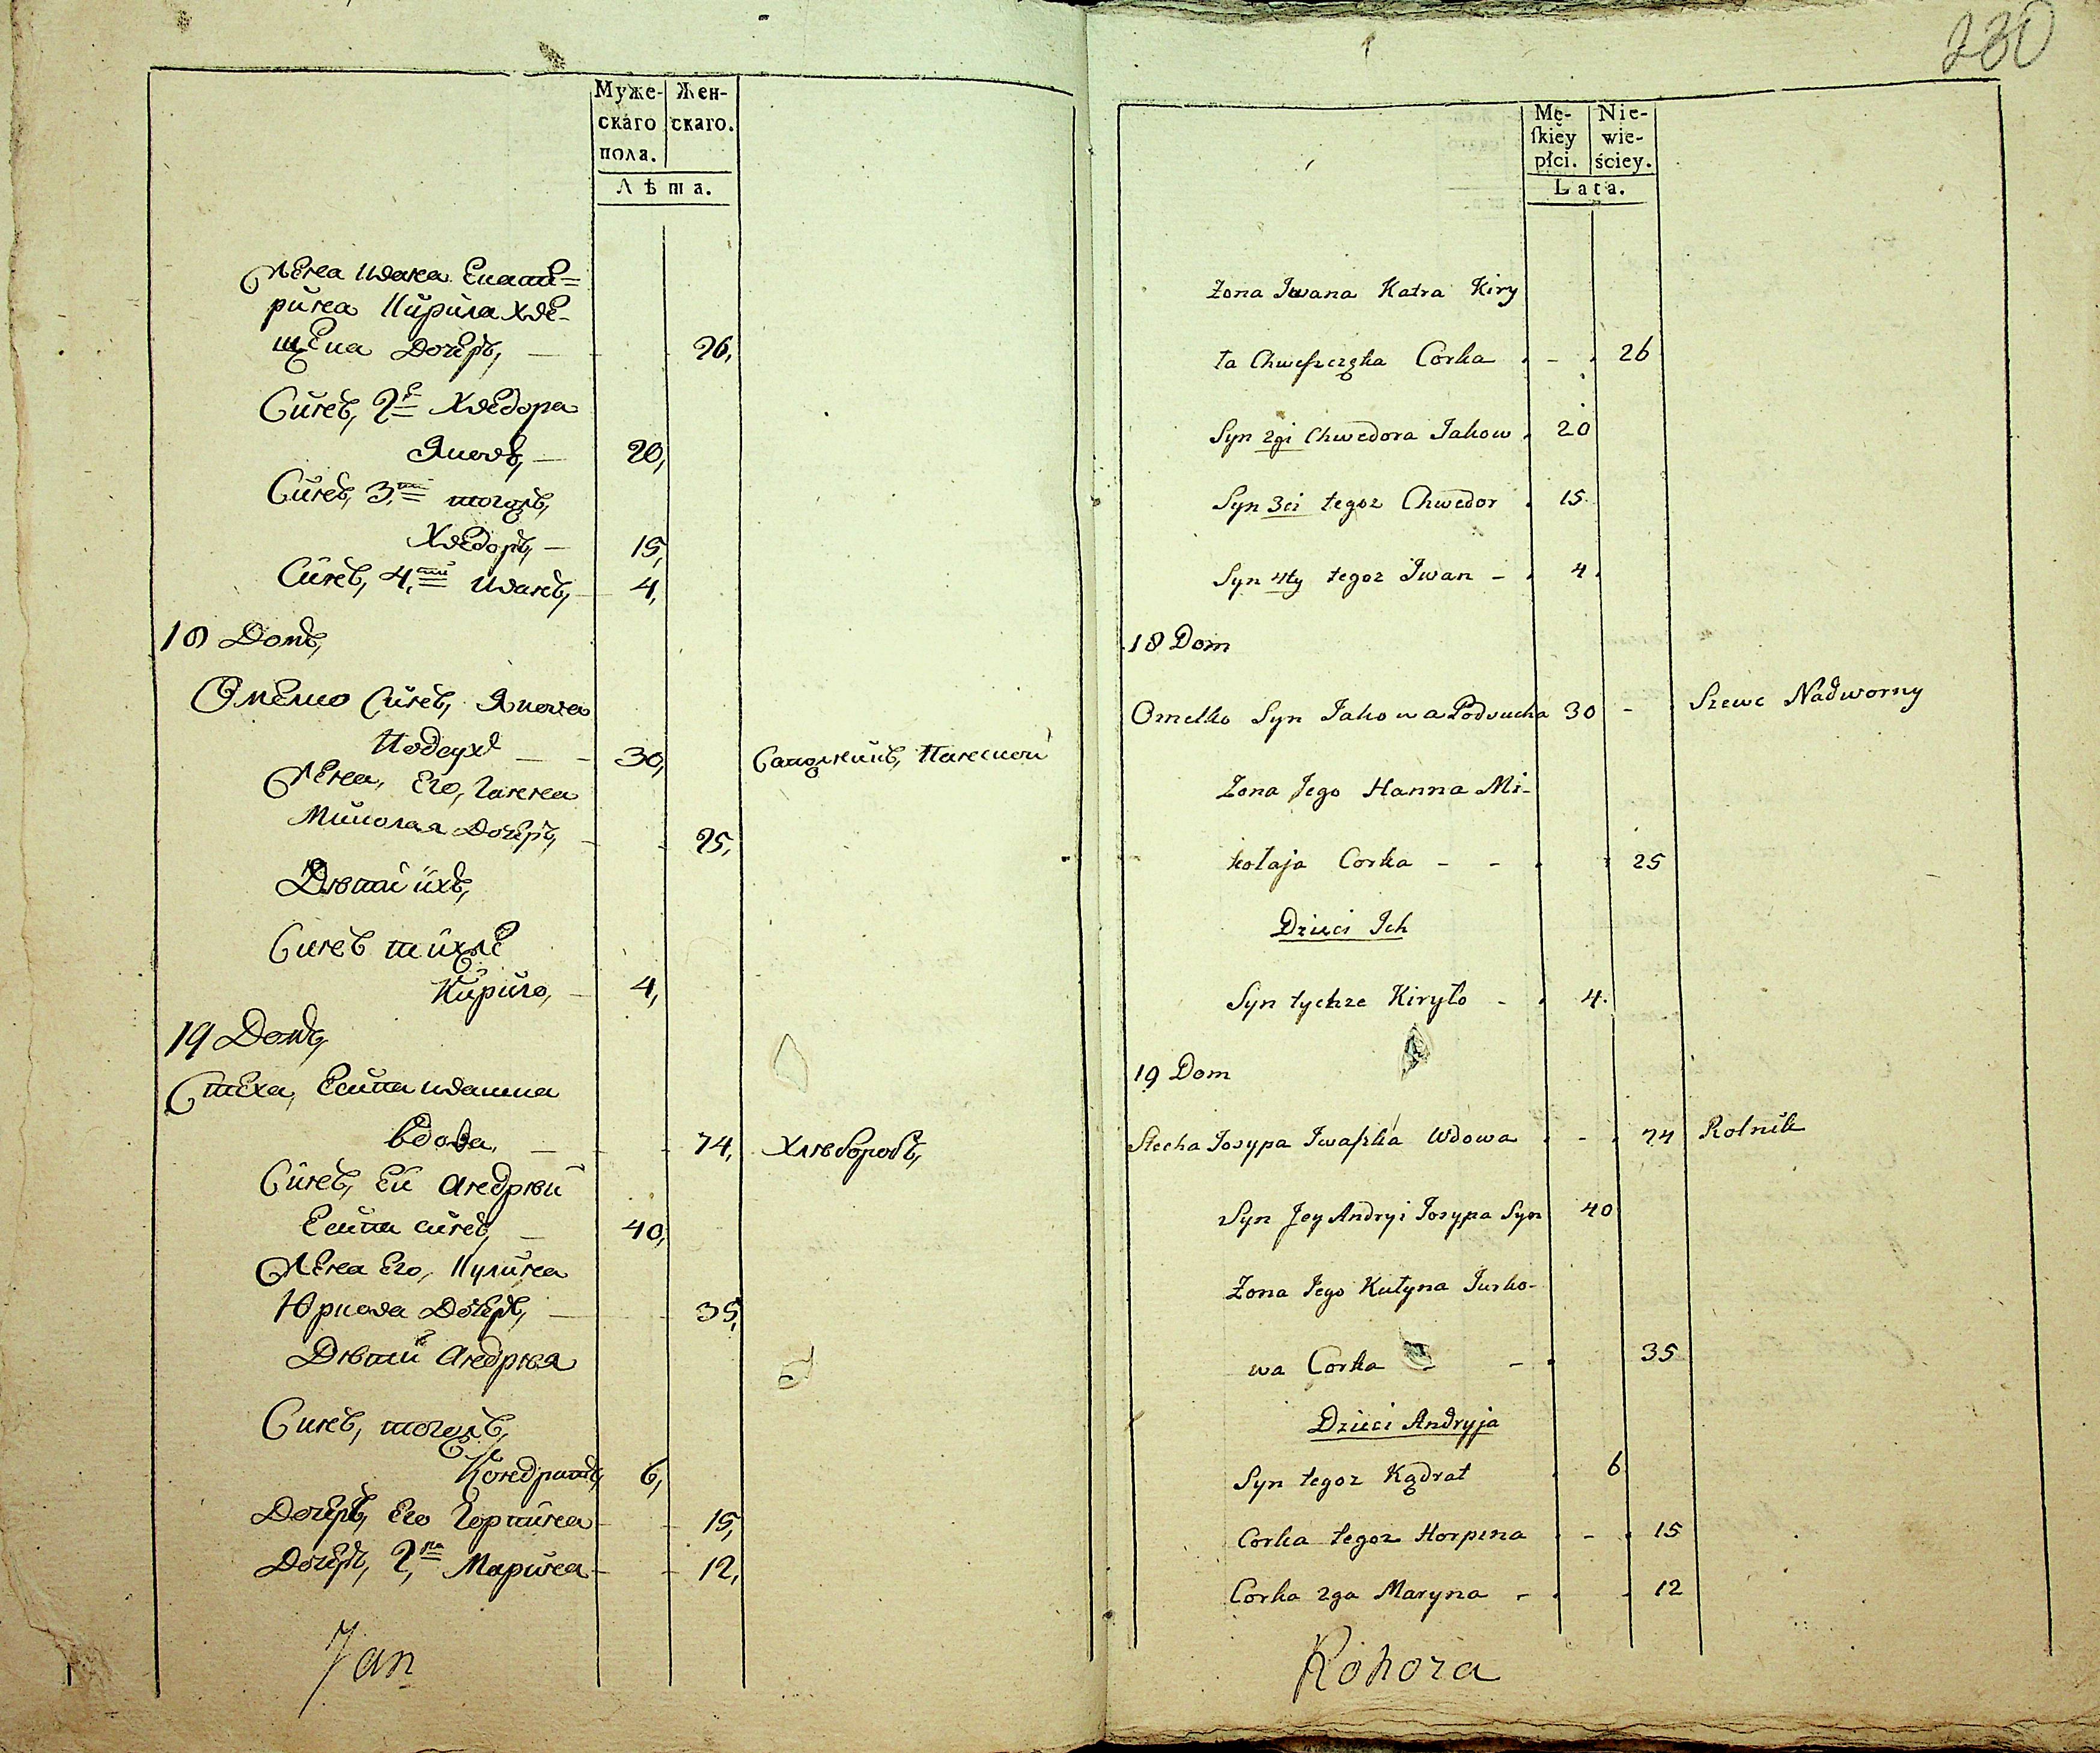 Муже-
скаго
пола.
Жен-
скаго.
Лѣта.
Жена Ивана Екате=
рина Кирила Хве-
щена Дочеръ, 26,
Синъ, 2й Хведора
Яковъ, 20,
Синъ, 3тй тогожъ,
Хведоръ, 15,
Синъ, 4,тий Иванъ, 4,
18 Домъ,
Омелко Синъ, Якова
Подсух 30, Сапожникъ, Панской
Жена, Его, Ганна
Миколая Дочеръ, 25,
Дѣти ихъ,
Синъ тихже
Кирило, 4,
19 Домъ,
Стеха, Есипа Ивашка
Вдова, 74, Хлѣборобъ,
Синъ, Ей Андрѣй
Есипа синъ, 40,
Жена Его, Кулина
Юркова Дочеръ, 35,
Дѣти Андрѣя
Синъ, тогожъ,
Кондратъ, 6,
Дочеръ, Его Горпина 15,
Дочеръ, 2,га Марина 12,
Jan
230
Mę-
skiey
płci.
Nie-
wie-
ściey.
Lata.
Zona Iwana Katra Kiry
ła Chweszczęka Corka 26
Syn 2gi Chwedora Jakow 20
Syn 3ci tegoz Chwedor 15
Syn 4ty tegoz Iwan 4
18 Dom
Omelko Syn Jakowa Podsucha 30 Szewc Nadworny
Zona Jego Hanna Mi-
kołaja Corka 25
Dzieci Ich
Syn tychze Kiryło 4.
19 Dom
Stecha Josypa Iwaszka Wdowa 74 Rolnik
Syn Jey Andryi Josypa Syn 40
Zona Jego Kułyna Jurko-
wa Corka 35
Dzieci Andryja
Syn tegoz Kądrat 6
Corka tegoz Horpina 15
Corka 2ga Maryna 12
Rohoza